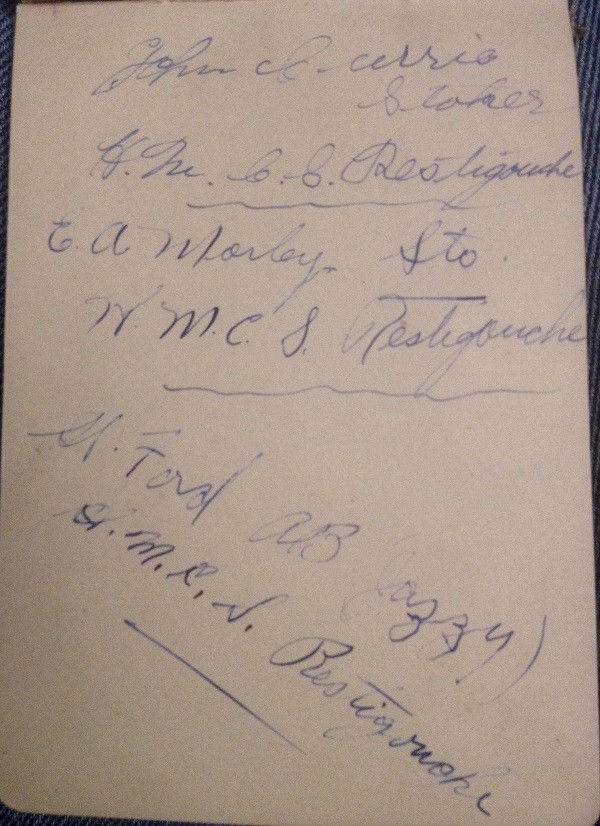 John Currie
Stoker
H.M.C.S. Restigouche
E. A Morley Sto.
H.M.C.S. Restigouche
H. Ford AB (Jazzy)
H.M.C.S. Restigouche